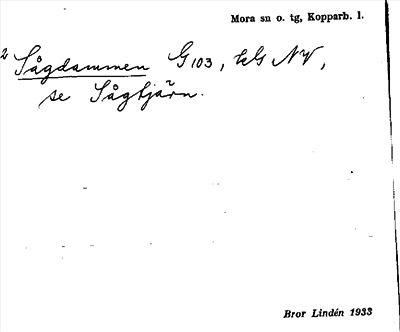 Mora sn o. tg, Kopparb. l.
2 Sågdammen G 103, NV,
se Sågtjärn.
Bror Lindén 1933